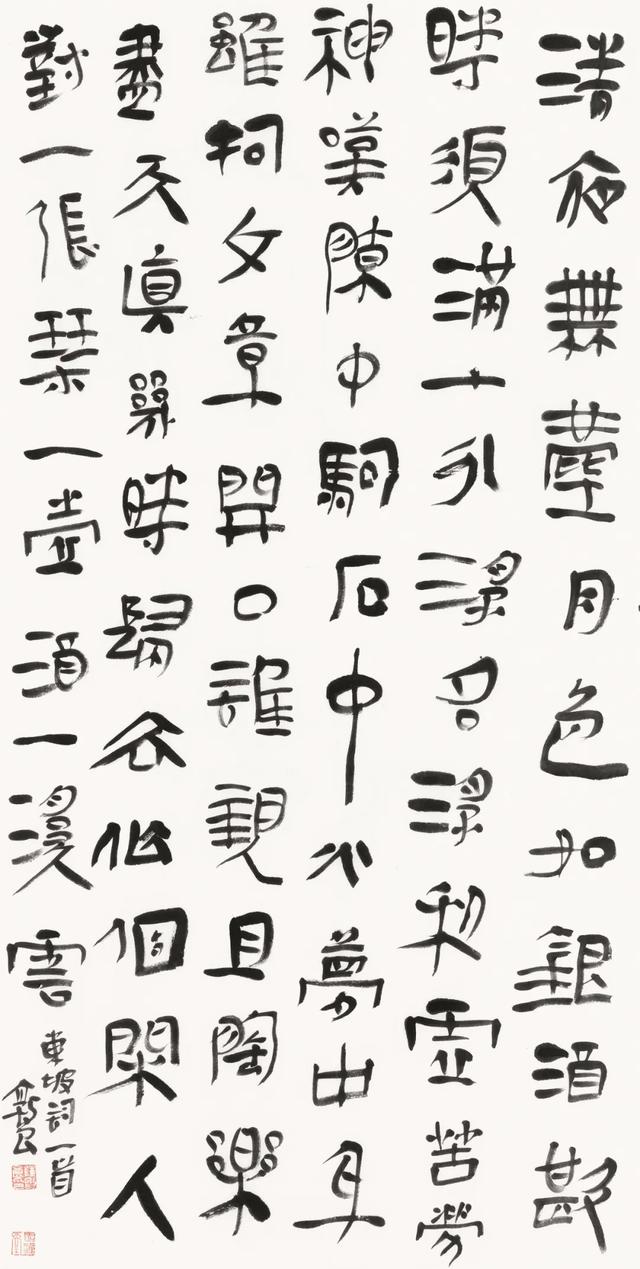 清夜無塵月色如銀酒斟
時須滿十分浮名浮利虛苦勞
神嘆隙中駒石中火夢中身
雖抱文章開口誰親且陶樂
盡天真幾時歸去作個閒人
對一張琴一壺酒一溪雲
東坡詞一首